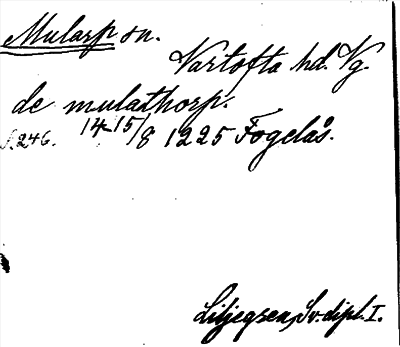 Mularp sn.
Vartofta hd. Vg.
de mulathorp.
s. 246. 14-15/8 1225 Fogelås.
Liljegren, Sv. dipl. I.